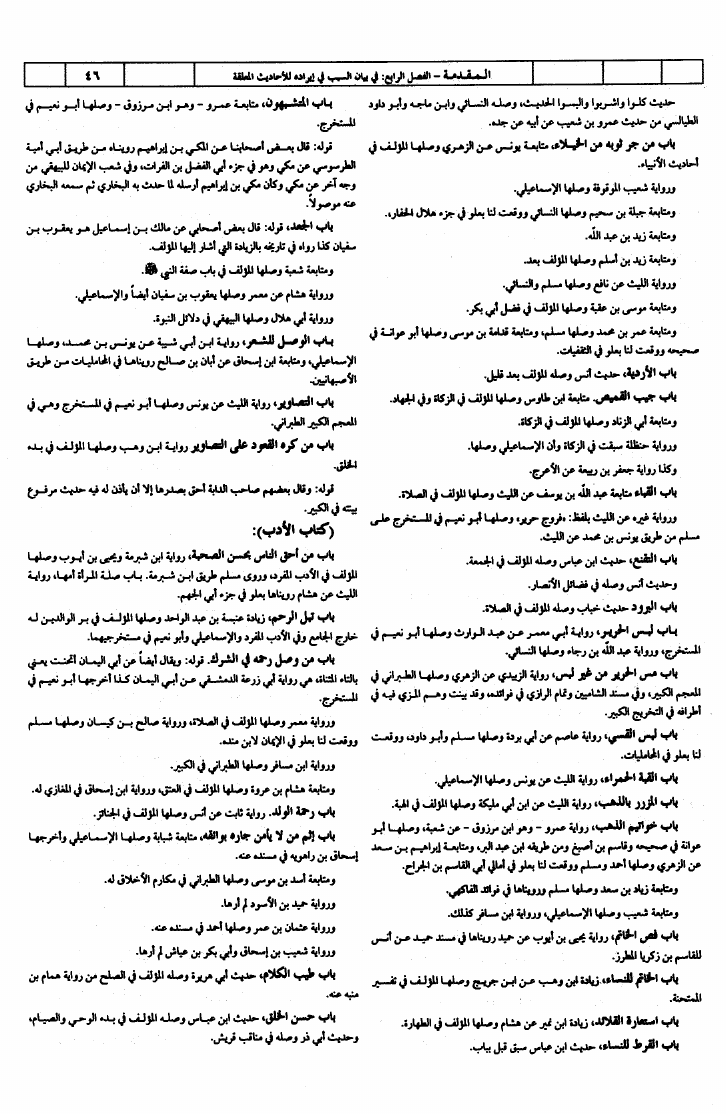 المقدمة - الفصل الرابع: في بيان السبب في إيراده للأحاديث المعلقة
٤٦
حديث كلوا واشربوا والبسوا الحديث، وصله النسائي وابن ماجه وأبو داود
الطيالسي من حديث عمرو بن شعيب عن أبيه عن جده.
باب من جر ثوبه من الخيلاء، متابعة يونس عن الزهري وصلها المؤلف في
أحاديث الأنبياء.
ورواية شعيب الموقوفة وصلها الإسماعيلي.
ومتابعة جبلة بن سحيم وصلها النسائي ووقعت لنا بعلو في جزء هلال الحفار.
ومتابعة زيد بن عبد الله.
ومتابعة زيد بن أسلم وصلها المؤلف بعد.
ورواية الليث عن نافع وصلها مسلم والنسائي.
ومتابعة موسى بن عقبة وصلها المؤلف في فضل أبي بكر.
ومتابعة عمر بن محمد وصلها مسلم، ومتابعة قدامة بن موسى وصلها أبو عوانة في
صحيحه ووقعت لنا بعلو في الثقفيات.
باب الأردية، حديث أنس وصله المؤلف بعد قليل.
باب جيب القميص. متابعة ابن طاوس وصلها المؤلف في الزكاة وفي الجهاد.
ومتابعة أبي الزناد وصلها المؤلف في الزكاة.
ورواية حنظلة سبقت في الزكاة وأن الإسماعيلي وصلها.
وكذا رواية جعفر بن ربيعة عن الأعرج.
باب القباء متابعة عبد الله بن يوسف عن الليث وصلها المؤلف في الصلاة.
ورواية غيره عن الليث بلفظ: «فروج حرير» وصلها أبو نعيم في المستخرج على
مسلم من طريق يونس بن محمد عن الليث.
باب التقنع، حديث ابن عباس وصله المؤلف في الجمعة.
وحديث أنس وصله في فضائل الأنصار.
باب البرود حديث خباب وصله المؤلف في الصلاة.
باب لبس الحرير، رواية أبي معمر عن عبد الوارث وصلها أبو نعيم في
المستخرج، ورواية عبد الله بن رجاء وصلها النسائي.
باب مس الحرير من غير لبس، رواية الزبيدي عن الزهري وصلها الطبراني في
المعجم الكبير، وفي مسند الشاميين وتمام الرازي في فوائده، وقد بينت وهم المزي فيه في
أطرافه في التخريج الكبير.
باب لبس القسي، رواية عاصم عن أبي بردة وصلها مسلم وأبو داود، ووقعت
لنا بعلو في المحامليات.
باب القبة الحمراء، رواية الليث عن يونس وصلها الإسماعيلي.
باب المزرر بالذهب، رواية الليث عن ابن أبي مليكة وصلها المؤلف في الهبة.
باب خواتيم الذهب، رواية عمرو - وهو ابن مرزوق - عن شعبة، وصلها أبو
عوانة في صحيحه وقاسم بن أصبغ ومن طريقه ابن عبد البر، ومتابعة إبراهيم بن سعد
عن الزهري وصلها أحمد ومسلم ووقعت لنا بعلو في أمالي أبي القاسم بن الجراح.
ومتابعة زياد بن سعد وصلها مسلم ورويناها في فوائد الفاكهي.
ومتابعة شعيب وصلها الإسماعيلي، ورواية ابن مسافر كذلك.
باب فص الخاتم، رواية يحيى بن أيوب عن حميد رويناها في مسند حميد عن أنس
للقاسم بن زكريا المطرز.
باب الخاتم للنساء، زيادة ابن وهب عن ابن جريج وصلها المؤلف في تفسير
الممتحنة.
باب استعارة القلائد، زيادة ابن نمير عن هشام وصلها المؤلف في الطهارة.
باب القرط للنساء، حديث ابن عباس سبق قبل بباب.
باب المتشبهون، متابعة عمرو - وهو ابن مرزوق - وصلها أبو نعيم في
المستخرج.
قوله: قال بعض أصحابنا عن المكي بن إبراهيم رويناه من طريق أبي أمية
الطرسوسي عن مكي وهو في جزء أبي الفضل بن الفرات، وفي شعب الإيمان للبيهقي من
وجه آخر عن مكي وكأن مكي بن إبراهيم أرسله لما حدث به البخاري ثم سمعه البخاري
عنه موصولاً.
باب الجعد، قوله: قال بعض أصحابي عن مالك بن إسماعيل هو يعقوب بن
سفيان كذا رواه في تاريخه بالزيادة التي أشار إليها المؤلف.
ومتابعة شعبة وصلها المؤلف في باب صفة النبي ﷺ.
ورواية هشام عن معمر وصلها يعقوب بن سفيان أيضاً والإسماعيلي.
ورواية أبي هلال وصلها البيهقي في دلائل النبوة.
باب الوصل للشعر، رواية ابن أبي شيبة عن يونس بن محمد، وصلها
الإسماعيلي، ومتابعة ابن إسحاق عن أبان بن صالح رويناها في المحامليات من طريق
الأصبهانيين.
باب التصاوير، رواية الليث عن يونس وصلها أبو نعيم في المستخرج وهي في
المعجم الكبير الطبراني.
باب من كره القعود على التصاوير رواية ابن وهب وصلها المؤلف في بدء
الخلق.
قوله: وقال بعضهم صاحب الدابة أحق بصدرها إلا أن يأذن له فيه حديث مرفوع
بينته في الكبير.
(كتاب الأدب):
باب من أحق الناس بحسن الصحبة، رواية ابن شبرمة ويحيى بن أيوب وصلها
المؤلف في الأدب المفرد، وروى مسلم طريق ابن شبرمة. باب صلة المرأة أمها، رواية
الليث عن هشام رويناها بعلو في جزء أبي الجهم.
باب تبل الرحم، زيادة عنبسة بن عبد الواحد وصلها المؤلف في بر الوالدين له
خارج الجامع وفي الأدب المفرد والإسماعيلي وأبو نعيم في مستخرجيهما.
باب من وصل رحمه في الشرك. قوله: ويقال أيضاً عن أبي اليمان أتحنت يعني
بالتاء المثناة، هي رواية أبي زرعة الدمشقي عن أبي اليمان كذا أخرجها أبو نعيم في
المستخرج.
ورواية معمر وصلها المؤلف في الصلاة، ورواية صالح بن كيسان وصلها مسلم
ووقعت لنا بعلو في الإيمان لابن منده.
ورواية ابن مسافر وصلها الطبراني في الكبير.
ومتابعة هشام بن عروة وصلها المؤلف في العتق، ورواية ابن إسحاق في المغازي له.
باب رحمة الولد. رواية ثابت عن أنس وصلها المؤلف في الجنائز.
باب إثم من لا يأمن جاره بوائقه، متابعة شبابة وصلها الإسماعيلي وأخرجها
إسحاق بن راهويه في مسنده عنه.
ومتابعة أسد بن موسى وصلها الطبراني في مكارم الأخلاق له.
ورواية حميد بن الأسود لم أرها.
ورواية عثمان بن عمر وصلها أحمد في مسنده عنه.
ورواية شعيب بن إسحاق وأبي بكر بن عياش لم أرها.
باب طيب الكلام، حديث أبي هريرة وصله المؤلف في الصلح من رواية همام بن
منبه عنه.
باب حسن الخلق، حديث ابن عباس وصله المؤلف في بدء الوحي والصيام،
وحديث أبي ذر وصله في مناقب قريش.